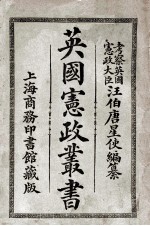 考察英國
憲政大臣汪伯唐星使編纂
英國憲政叢書
上海商務印書館藏版